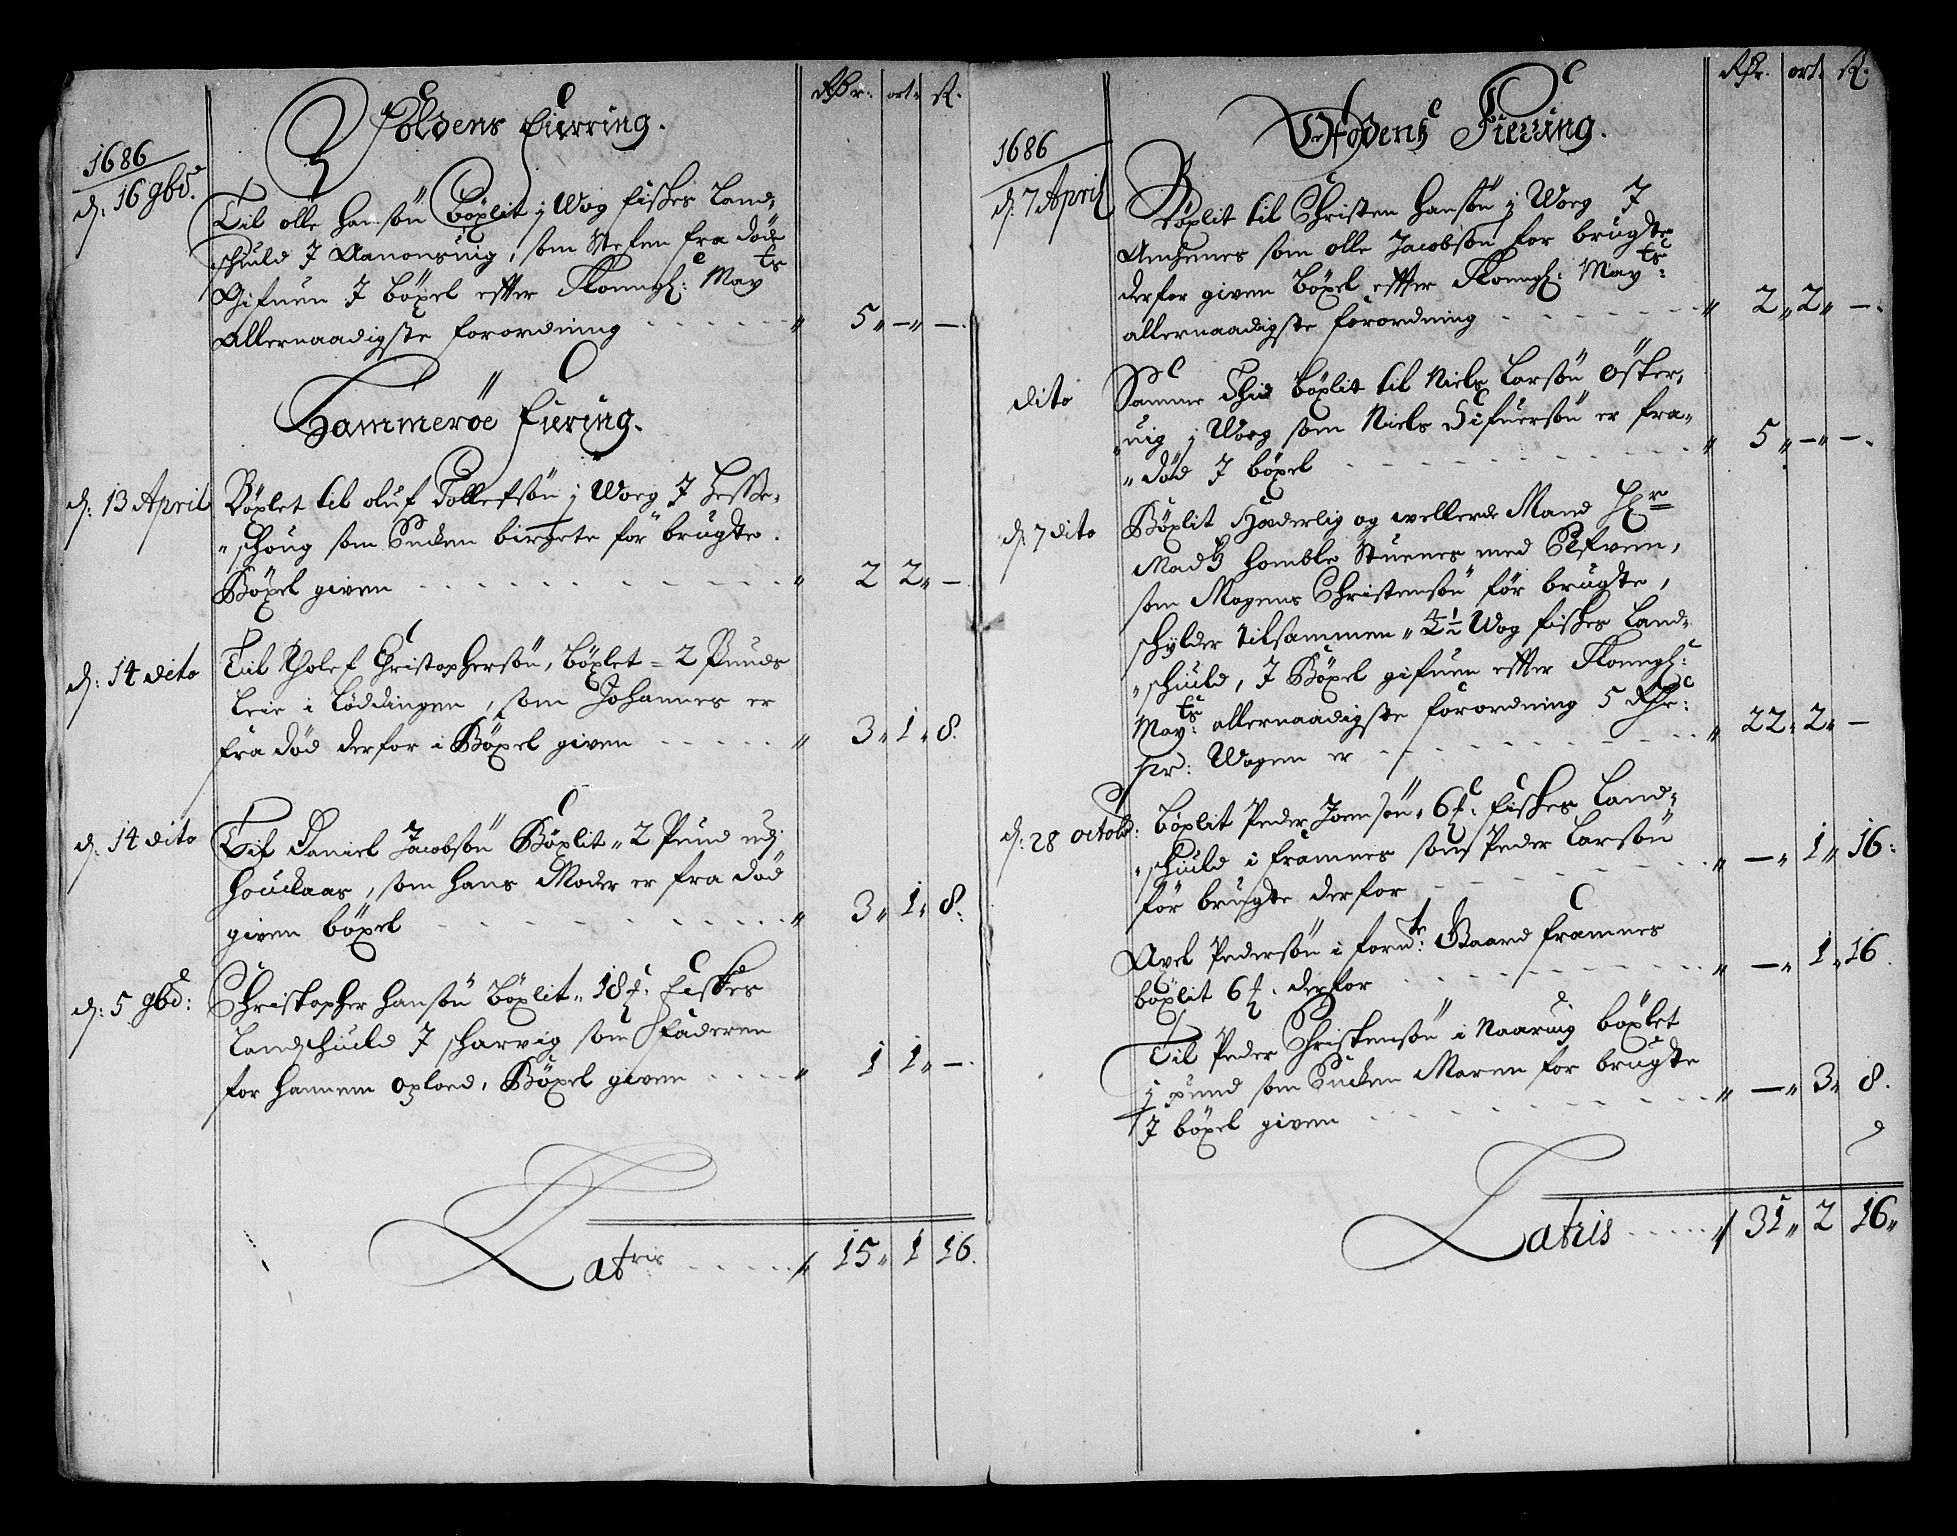 Rdr: ort. ß.
Foldens Fierring.
1686
d. 16 9bd.
Til olle Hansøn Bøxlit j Wog fiskes Land,
schuld J Aanonsuig, som Stefen fra døde
Gifuen J bøxel effter Konngl: May ts
Allernaadigste forordning - - - - " 5 " — " —.
Hammerøe Fiering.
d: 13 April
Bøxlet til oluf Tollefsøn j Woeg J Hesse-
schoug som Encken birgete før brugte.
Bøxel given - - - - " 2 2 " —.
d: 14 dito
Til Tholef Christophersøn, Bøxlet = 2 Punds
Leie i Løddingen, som Johannes er
fra død derfor i Bøxel given - - - - " 3 " 1 " 8.
d: 14 dito
Til Daniel Jacobsøn Bøxlit " 2 Pund udj
Houckaas, som Hans Moder er fra død
given bøxel - - - - " 3 " 1 " 8:
d: 5 9bd:
Christopher Hansøn Bøxlit " 18 . fiskes
Landschuld J scharvig som Faderen
for hannem oploed, Bøxel given - - - - " 1 1 " —.
Latris - - - - " 15 " 1 16.
Rdr. ort. ß.
Ofodens Fiering.
1686
d. 7 April
Bøxlit til Christen Hansøn j Woeg J
som olle Jacobsøn for brugte
derfor given Bøxel effter Konngl: May ts:
allernaadigste forordning - - - - " 2 " 2 " —.
dito
Samme Thid bøxlit til Niels Larsøn Øsker,
"uig j Woeg som Niels Sifuersøn er fra-
"død J bøxel - - - - " 5 " — " —.
d. 7 dito
Bøxlit Hæderlig og wellerde Mand Hr
Madtz Homble Stuenes med Elfveen,
som Mogens Christensøn før brugte,
schylder tilsammen " 4 1/2 Wog fiskes Land-
"schuld, J Bøxel gifuen effter Konngl:
May ts: allernaadigste forordning 5 Rdr:
pr: Wogen er - - - - " 22 " 2 " —
d: 28 octobr:
Bøxlit Peder Joensøn " 6 . fiskes Land-
"schuld i Framnes som Peder Larsøn
før brugte derfor - - - - " — " 1 " 16:
Axel Pedersøn i formte: Gaard Framnes
bøxlit 6 . derfor - - - - " — " 1 " 16.
Til Peder Christensøn i Naaruig bøxlet
j pund som Encken Maren for brugte
J bøxel given - - - - " — " 3 " 8.
Latris - - - - " 31 " 2 16 "